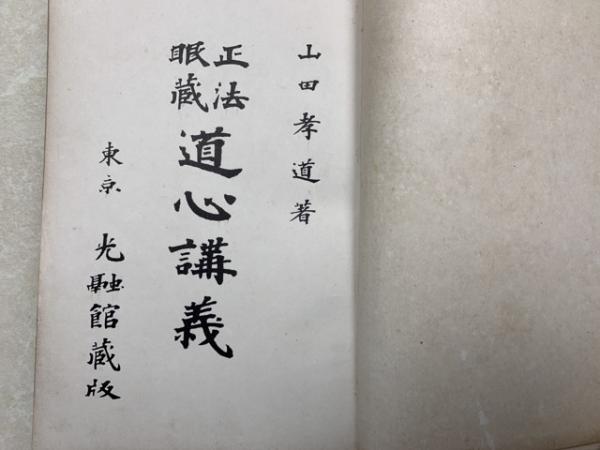 山田孝道著
正法眼蔵 道心講義
東京 光融館蔵版